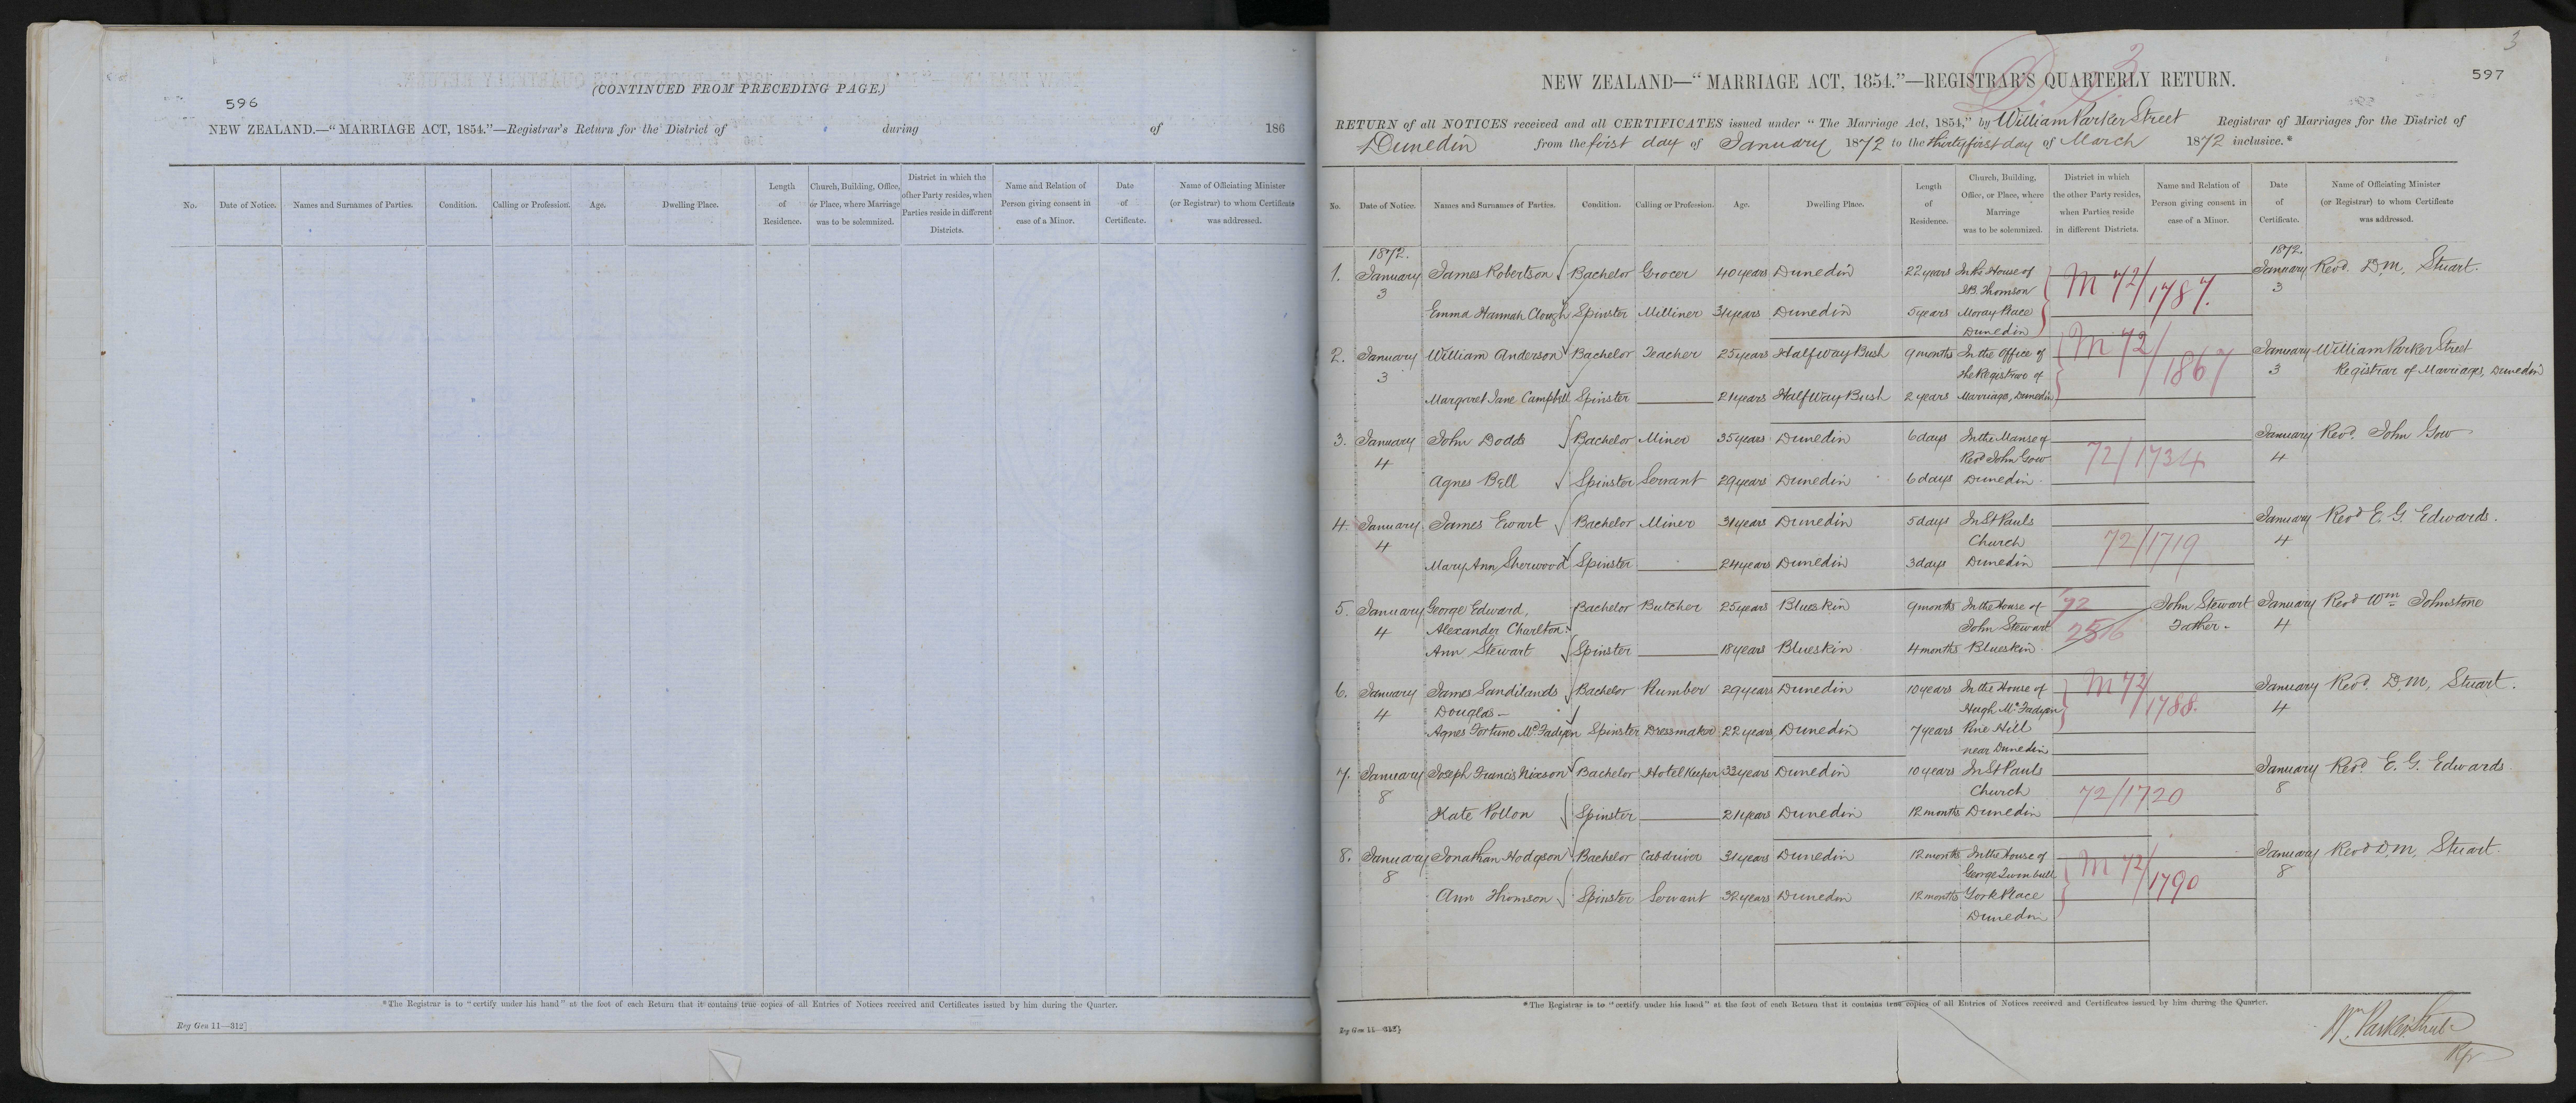 (CONTINUED FROM PRECEDING PAGE.)
596
NEW ZEALAND.—“MARRIAGE ACT, 1854.”—Registrar's Return for the District of during of 186
No. Date of Notice. Names and Surnames of Parties. Condition. Calling or Profession. Age. Dwelling Place. Length of Residence. Church, Building, Office, or Place, where Marriage was to be solemnized. District in which the other Party resides, when Parties reside in different Districts. Name and Relation of Person giving consent in case of a Minor. Date of Certificate. Name of Officiating Minister (or Registrar) to whom Certificate was addressed.
*The Registrar is to “certify under his hand” at the foot of each Return that it contains true copies of all Entries of Notices received and Certificates issued by him during the Quarter.
Reg Gen 11—312]
3
597
NEW ZEALAND—“MARRIAGE ACT, 1854.”—REGISTRAR'S QUARTERLY RETURN.
RETURN of all NOTICES received and all CERTIFICATES issued under “The Marriage Act, 1854,” by William Parker Street Registrar of Marriages for the District of
Dunedin from the first day of January 1872 to the thirty first day of March 1872 inclusive.*
No. Date of Notice. Names and Surnames of Parties. Condition. Calling or Profession. Age. Dwelling Place. Length of Residence. Church, Building, Office, or Place, where Marriage was to be solemnized. District in which the other Party resides, when Parties reside in different Districts. Name and Relation of Person giving consent in case of a Minor. Date of Certificate. Name of Officiating Minister (or Registrar) to whom Certificate was addressed.
1872. 1872.
1. January James Robertson Bachelor Grocer 40 years Dunedin 22 years In the House of M 72/1787. January Revd. D. M. Stuart.
3 J.B. Thomson 3
Emma Hannah Clough Spinster Milliner 34 years Dunedin 5 years Moray Place
Dunedin
2. January William Anderson Bachelor Teacher 25 years Halfway Bush 9 months In the Office of M 72/1867 January William Parker Street
3 the Registrar of 3 Registrar of Marriages, Dunedin
Margaret Jane Campbell Spinster 21 years Halfway Bush 2 years Marriages, Dunedin
3. January John Dodds Bachelor Miner 35 years Dunedin 6 days In the Manse of January Revd. John Gow
4 Revd John Gow 72/1734 4
Agnes Bell Spinster Servant 29 years Dunedin 6 days Dunedin
4. January James Ewart Bachelor Miner 31 years Dunedin 5 days In St Pauls January Revd E. G. Edwards.
4 Church 72/1719 4
Mary Ann Sherwood Spinster 24 years Dunedin 3 days Dunedin
5. January George Edward, Bachelor Butcher 25 years Blueskin 9 months In the House of 72 John Stewart January Revd Wm Johnstone
4 Alexander Charlton John Stewart 2516 Father. 4
Ann Stewart Spinster 18 years Blueskin 4 months Blueskin
6. January James Sandilands Bachelor Plumber 29 years Dunedin 10 years In the House of M 72/1788. January Revd. D. M. Stuart.
4 Douglas Hugh McFadyen 4
Agnes Fortune McFadyen Spinster Dressmaker 22 years Dunedin 7 years Pine Hill
near Dunedin
7. January Joseph Francis Nixson Bachelor Hotel Keeper 33 years Dunedin 10 years In St Pauls January Revd. E. G. Edwards
8 Church 72/1720 8
Kate Pollon Spinster 21 years Dunedin 12 months Dunedin
8. January Jonathan Hodgson Bachelor Cabdriver 31 years Dunedin 12 months In the House of M 72/1790 January Revd D. M. Stuart.
8 George Turnbull 8
Ann Thomson Spinster Servant 32 years Dunedin 12 months York Place
Dunedin
*The Registrar is to “certify under his hand” at the foot of each Return that it contains true copies of all Entries of Notices received and Certificates issued by him during the Quarter.
Reg Gen 11—312]
Wm. Parker Street
Rgr